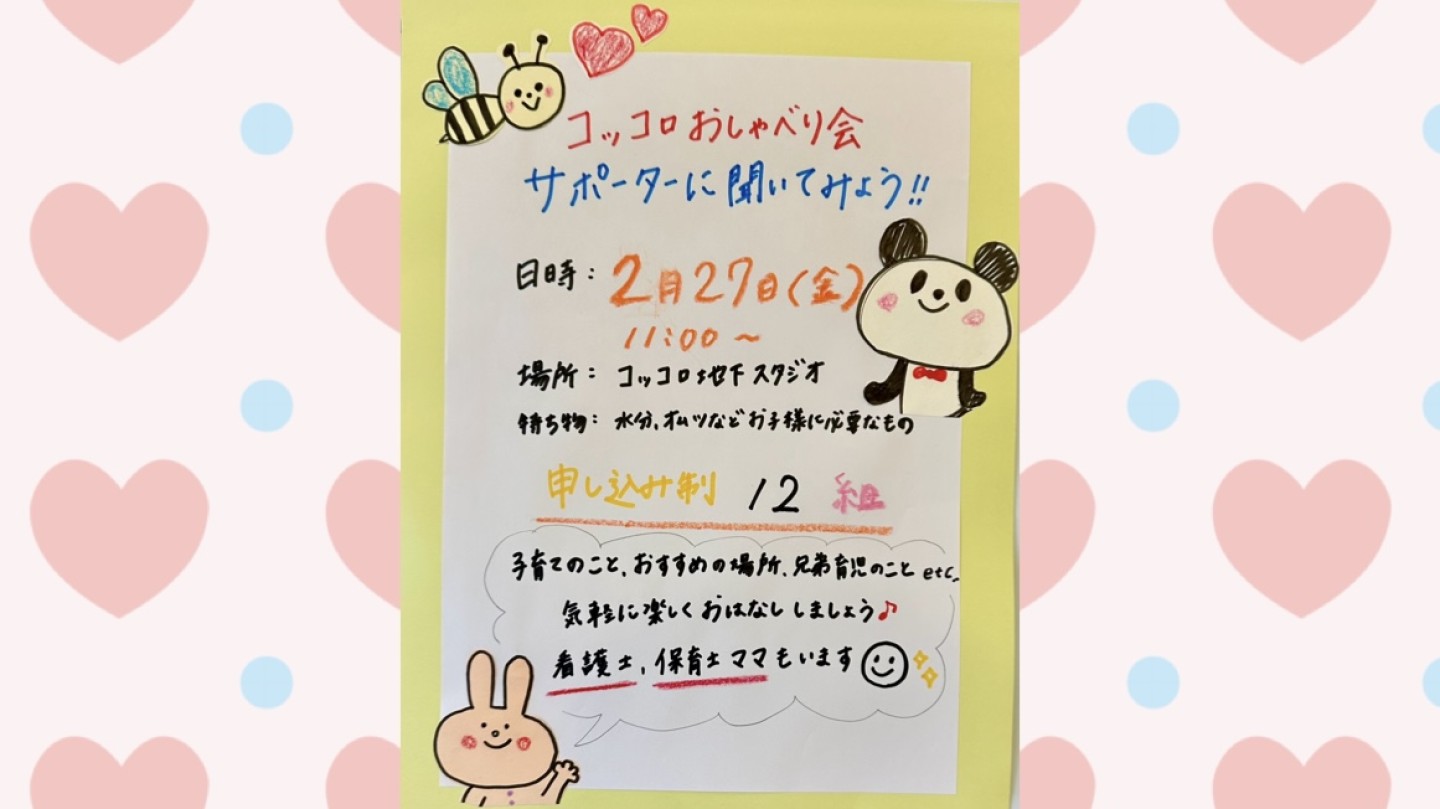 コッコロおしゃべり会
サポーターに聞いてみよう!!
日時: 2月27日(金)
11:00~
場所: コッコロ地下スタジオ
持ち物: 水分、オムツなどお子様に必要なもの
申し込み制 12組
子育てのこと、おすすめの場所、兄弟育児のこと etc.
気軽に楽しくおはなししましょう♪
看護士、保育士ママもいます